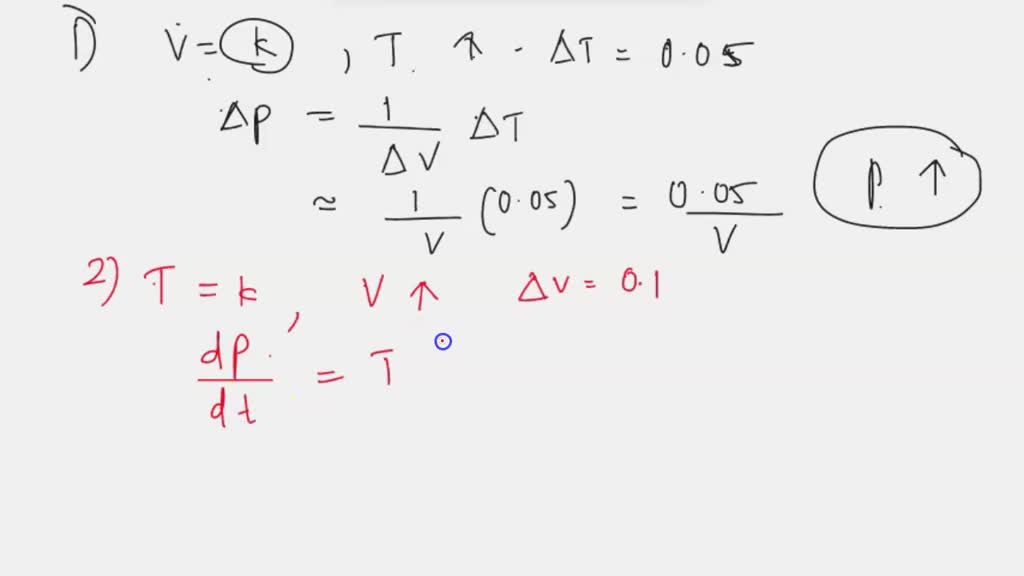 1) V = k , T ↑ - ΔT = 0.05
Δp = 1/ΔV ΔT
≈ 1/V (0.05) = 0.05/V
p ↑
2) T = k , V ↑ ΔV = 0.1
dp/dt = T